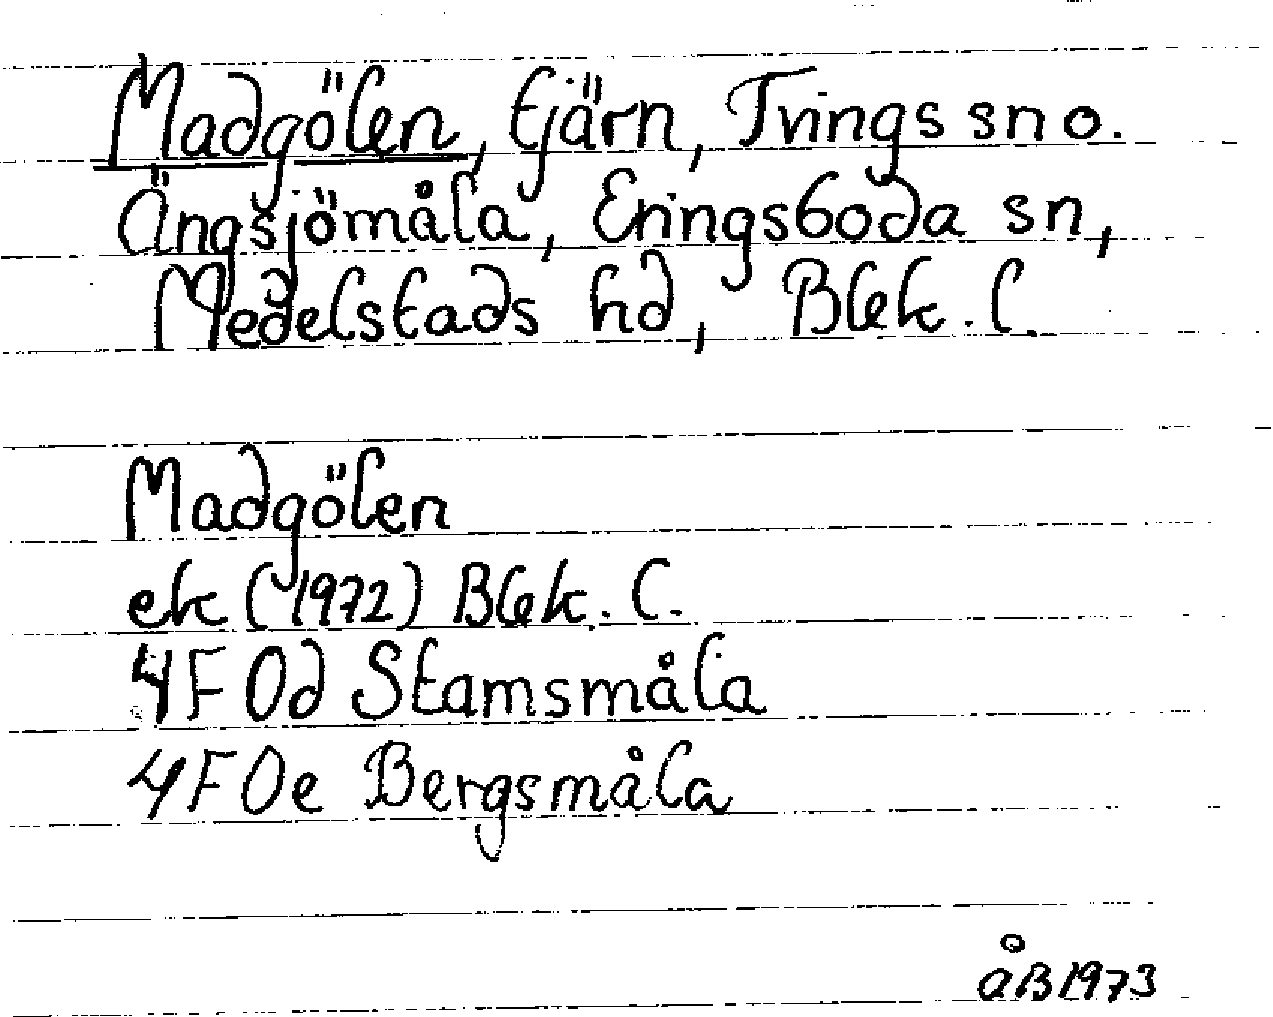 Madgölen, tjärn, Tvings sn o.
Ängsjömåla, Eringsboda sn,
Medelstads hd, Blek. l.
Madgölen
ek (1972) Blek. l.
4F 0d Stamsmåla
4F 0e Bergsmåla
åB 1973